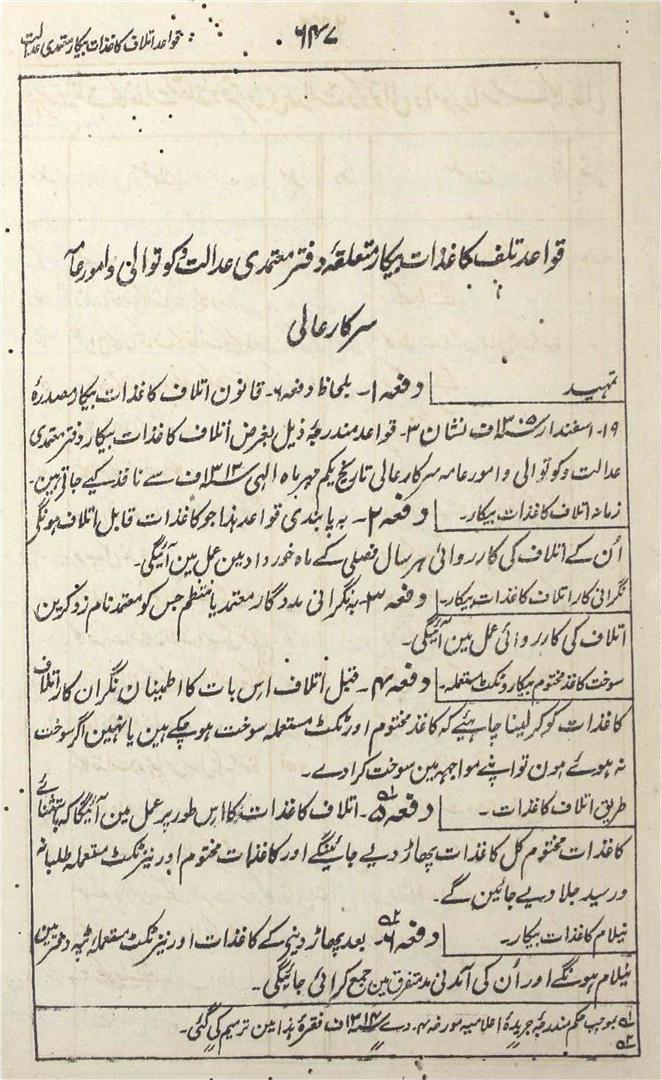 قواعد اتلاف کاغذات بیکار معتمدی عدالت
۶۴۷
قواعد تلف کاغذات بیکار متعلقۂ دفتر معتمدی عدالت و کوتوالی و امور عامہ
سرکار عالی
تمہید دفعہ ۱۔ بلحاظ دفعہ ۶۔ قانون اتلاف کاغذات بیکار مصدرۂ
۱۹۔ اسفندار ۱۳۰۵ف نشان ۳۔ قواعد مندرجۂ ذیل بغرض اتلاف کاغذات بیکار دفتر معتمدی
عدالت و کوتوالی و امور عامہ سرکار عالی تاریخ یکم مہر ماہ الٰہی ۱۳۱۳ف سے نافذ کیے جاتے ہین۔
زمانہ اتلاف کاغذات بیکار۔ دفعہ ۲۔ بہ پابندی قواعد ہذا جو کاغذات قابل اتلاف ہونگے
اُن کے اتلاف کی کارروائی ہر سال فصلی کے ماہ خورداد مین عمل مین آئیگی۔
نگرانی کار اتلاف کاغذات بیکار۔ دفعہ ۳۔ بہ نگرانی مددگار معتمد یا منتظم جس کو معتمد نام زد کرین
اتلاف کی کارروائی عمل مین آئیگی۔
سوخت کاغذ مختوم بیکار و ٹکٹ مستعملہ۔ دفعہ ۴۔ قبل اتلاف اس بات کا اطمینان نگران کار اتلاف
کاغذات کو کرلینا چاہیئے کہ کاغذ مختوم اور ٹکٹ مستعملہ سوخت ہوچکے ہین یا نہین اگر سوخت
نہ ہوئے ہون تو اپنے مواجہہ مین سوخت کرادے۔
طریق اتلاف کاغذات۔ دفعہ ۵؎۱۔ اتلاف کاغذات کا اس طور پر عمل مین آئیگا کہ باستثنائے
کاغذات مختوم کل کاغذات پھاڑ دیے جائینگے اور کاغذات مختوم اور نیز ٹکٹ مستعملہ طلبانہ
و رسید جلا دیے جائین گے۔
نیلام کاغذات بیکار۔ دفعہ ۶؎۲۔ بعد پھاڑ دینے کے کاغذات اور نیز ٹکٹ مستعملہ ٹپہ دفتر مین
نیلام ہونگے اور اُن کی آمدنی مد متفرق مین جمع کرائی جائیگی۔
؎۱ ؎۲ بموجب حکم مندرجۂ جریدۂ اعلامیہ مورخہ ۴۔ دے ۱۳۱۴ف فقرۂ ہذا مین ترمیم کی گئی۔